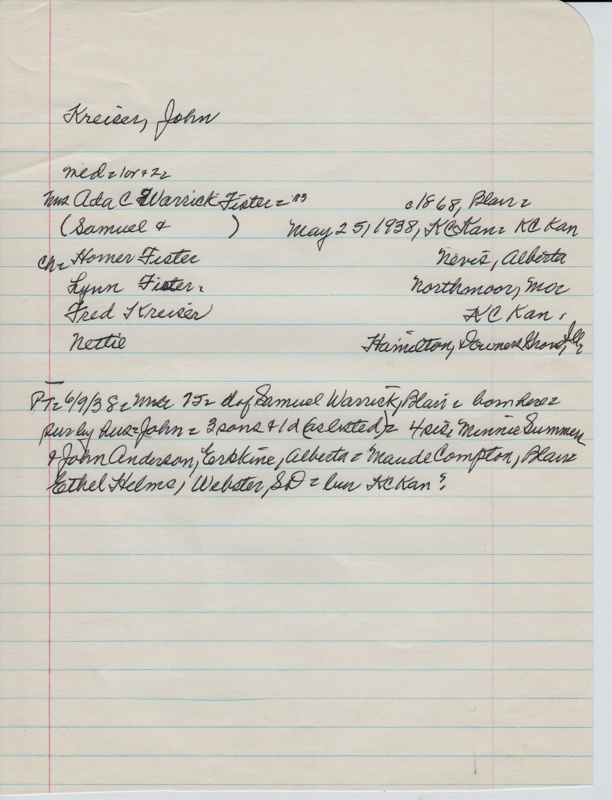 Kreiser, John
med=lor+2=
mrs Ada C Warrick Fister= c1868, Blair=
(Samuel + ) May 25, 1938, KCKan= KC Kan
Ch= Homer Fister Nevis, Alberta
Lynn Fister= Northmoor, Mo=
Fred Kreiser KC Kan,
Nettie Hamilton, Downers Grove, Ill=
PT= 6/9/38= Mrs K 75= d of Samuel Warrick, Blair= born here=
sur by hus=John= 3 sons + 1 d (as listed)= 4 sis= Minnie Summer
+ John Anderson, Erskine, Alberta= Maude Compton, Blair=
Ethel Helms, Webster, SD= bur KC Kan.